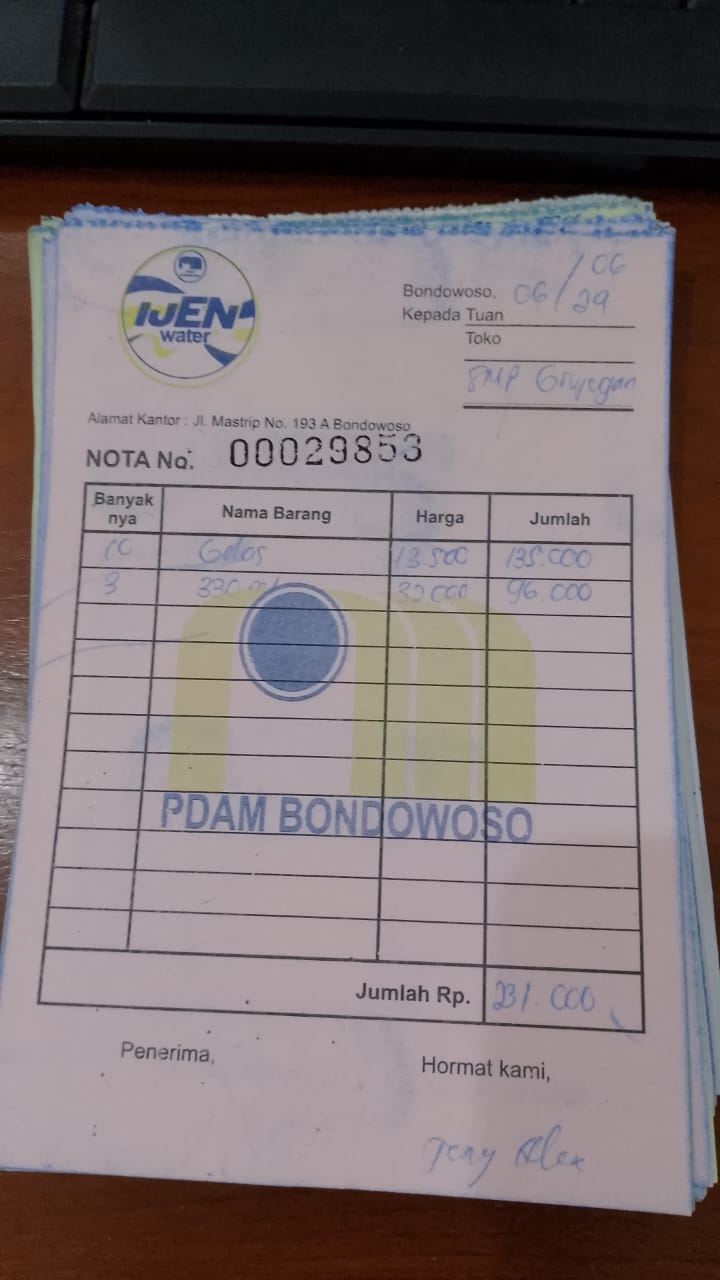 IJEN
water
Bondowoso, 06/29 /06
Kepada Tuan
Toko
SMP Grujugan
Alamat Kantor : Jl. Mastrip No. 193 A Bondowoso
NOTA No. 00029853
Banyak nya Nama Barang Harga Jumlah
10 Gelas 13.500 135.000
3 330 ml 32.000 96.000
PDAM BONDOWOSO
Jumlah Rp. 231.000
Penerima, Hormat kami,
Alex